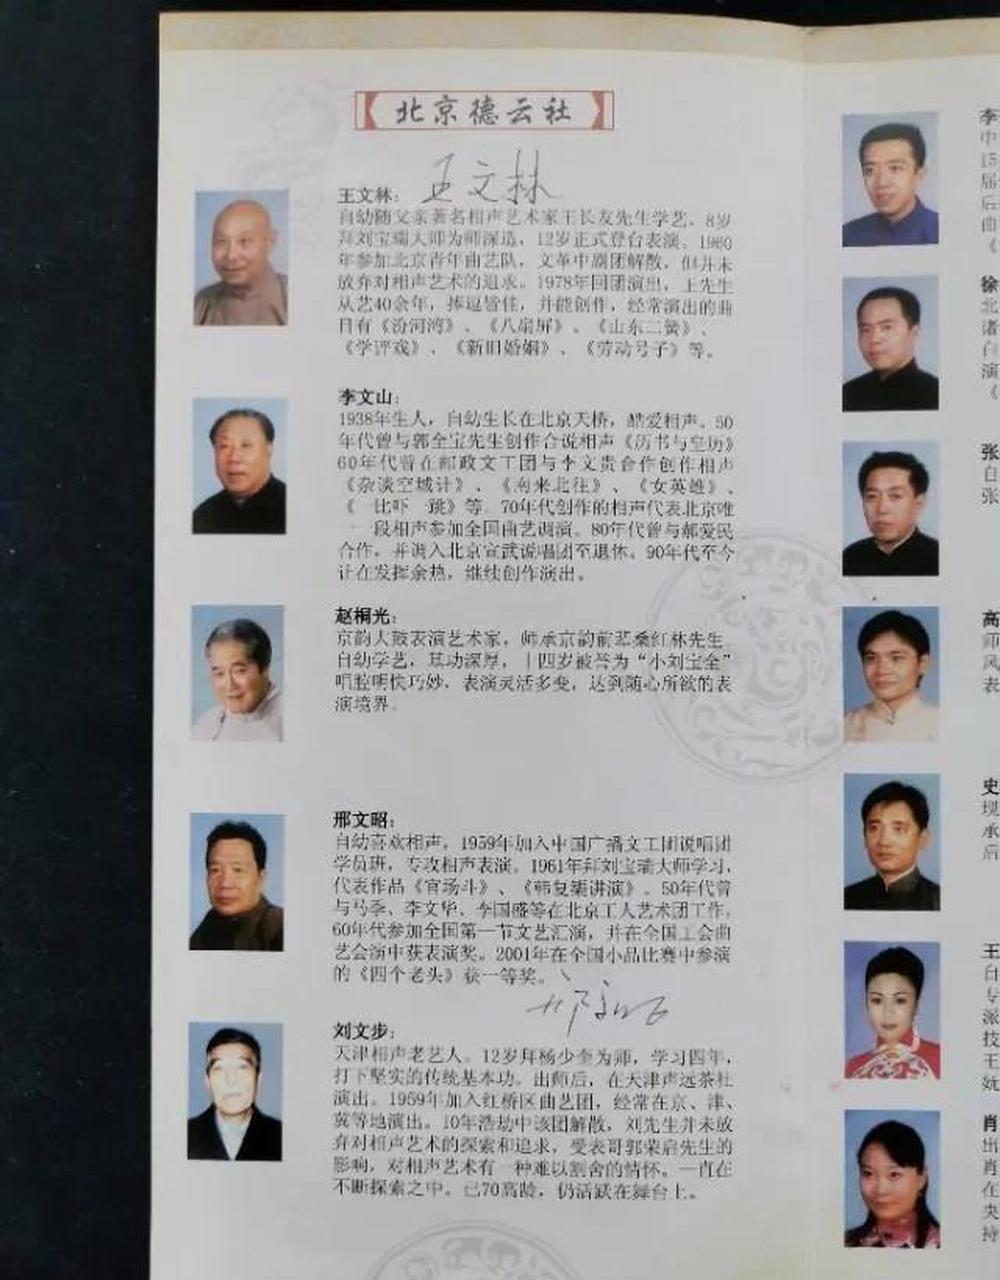 北京德云社
王文林
王文林：
自幼随父亲著名相声艺术家王长友先生学艺，8岁
拜刘宝瑞大师为师深造，12岁正式登台表演。1960
年参加北京青年曲艺队，文革中剧团解散，但并未
放弃对相声艺术的追求。1978年回团演出，王先生
从艺40余年，捧逗皆佳，并能创作，经常演出的曲
目有《汾河湾》、《八扇屏》、《山东二簧》、
《学评戏》、《新旧婚姻》、《劳动号子》等。
李文山：
1938年生人，自幼生长在北京天桥，酷爱相声。50
年代曾与郭全宝先生创作合说相声《历书与皇历》
60年代曾在邮政文工团与李文贵合作创作相声
《杂谈空城计》、《南来北往》、《女英雄》、
《一比吓一跳》等。70年代创作的相声代表北京唯
一一段相声参加全国曲艺调演。80年代曾与郝爱民
合作，并调入北京宣武说唱团至退休。90年代至今
让在发挥余热，继续创作演出。
赵桐光：
京韵大鼓表演艺术家，师承京韵前辈桑红林先生，
自幼学艺，基功深厚，十四岁被誉为“小刘宝全”
唱腔明快巧妙，表演灵活多变，达到随心所欲的表
演境界。
邢文昭：
自幼喜欢相声，1959年加入中国广播文工团说唱团
学员班，专攻相声表演。1961年拜刘宝瑞大师学习，
代表作品《官场斗》、《韩复榘讲演》。50年代曾
与马季、李文华、李国盛等在北京工人艺术团工作，
60年代参加全国第一节文艺汇演，并在全国工会曲
艺会演中获表演奖。2001年在全国小品比赛中参演
的《四个老头》获一等奖。
刘文步：
天津相声老艺人。12岁拜杨少奎为师，学习四年，
打下坚实的传统基本功。出师后，在天津声远茶社
演出。1959年加入红桥区曲艺团，经常在京、津、
冀等地演出。10年浩劫中该团解散，刘先生并未放
弃对相声艺术的探索和追求，受表哥郭荣启先生的
影响，对相声艺术有一种难以割舍的情怀。一直在
不断探索之中。已70高龄，仍活跃在舞台上。
李
中
15
届
后
曲
《
徐
北
诸
自
演
《
张
自
张
高
师
风
表
史
现
承
后
王
自
专
派
技
王
妩
肖
出
肖
在
央
持